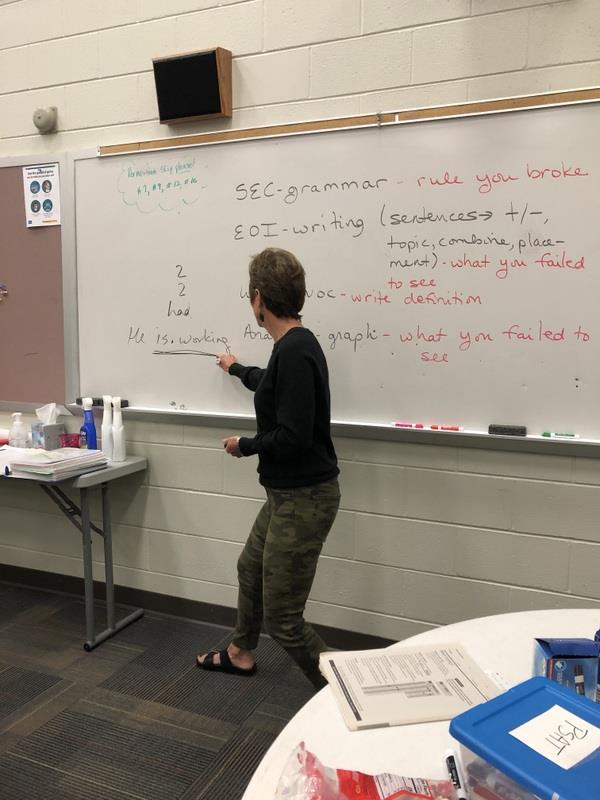 please!
#7, #9, #12, #16
SEC-grammar - rule you broke
EOI-writing (sentences → +/-,
topic, combine, place-
ment) - what you failed
to see
voc - write definition
graph - what you failed to
see
2
2
had
He is working
PSAT